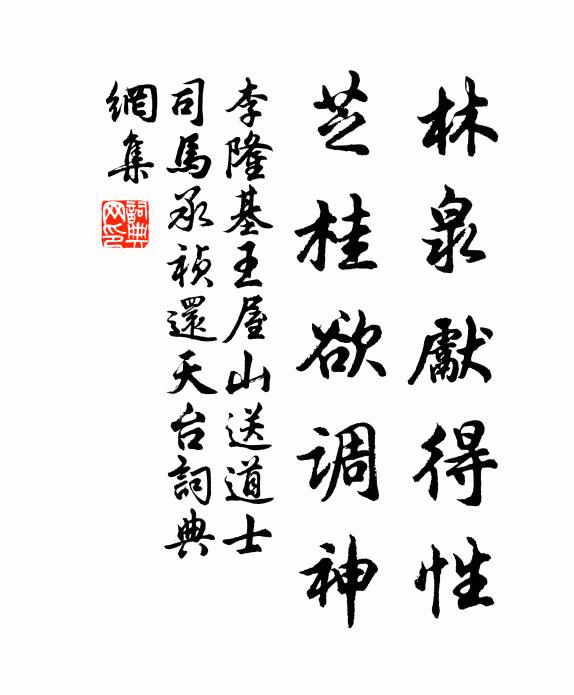 林泉獻得性
芝桂欲调神
李隆基王屋山送道士
司馬承禎還天台詞典
網集
詞典
网印